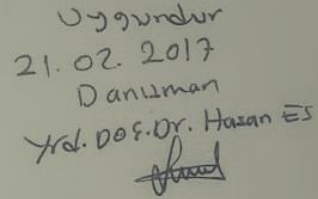 Uygundur
21.02.2017
Danışman
Yrd. Doç. Dr. Hasan ES